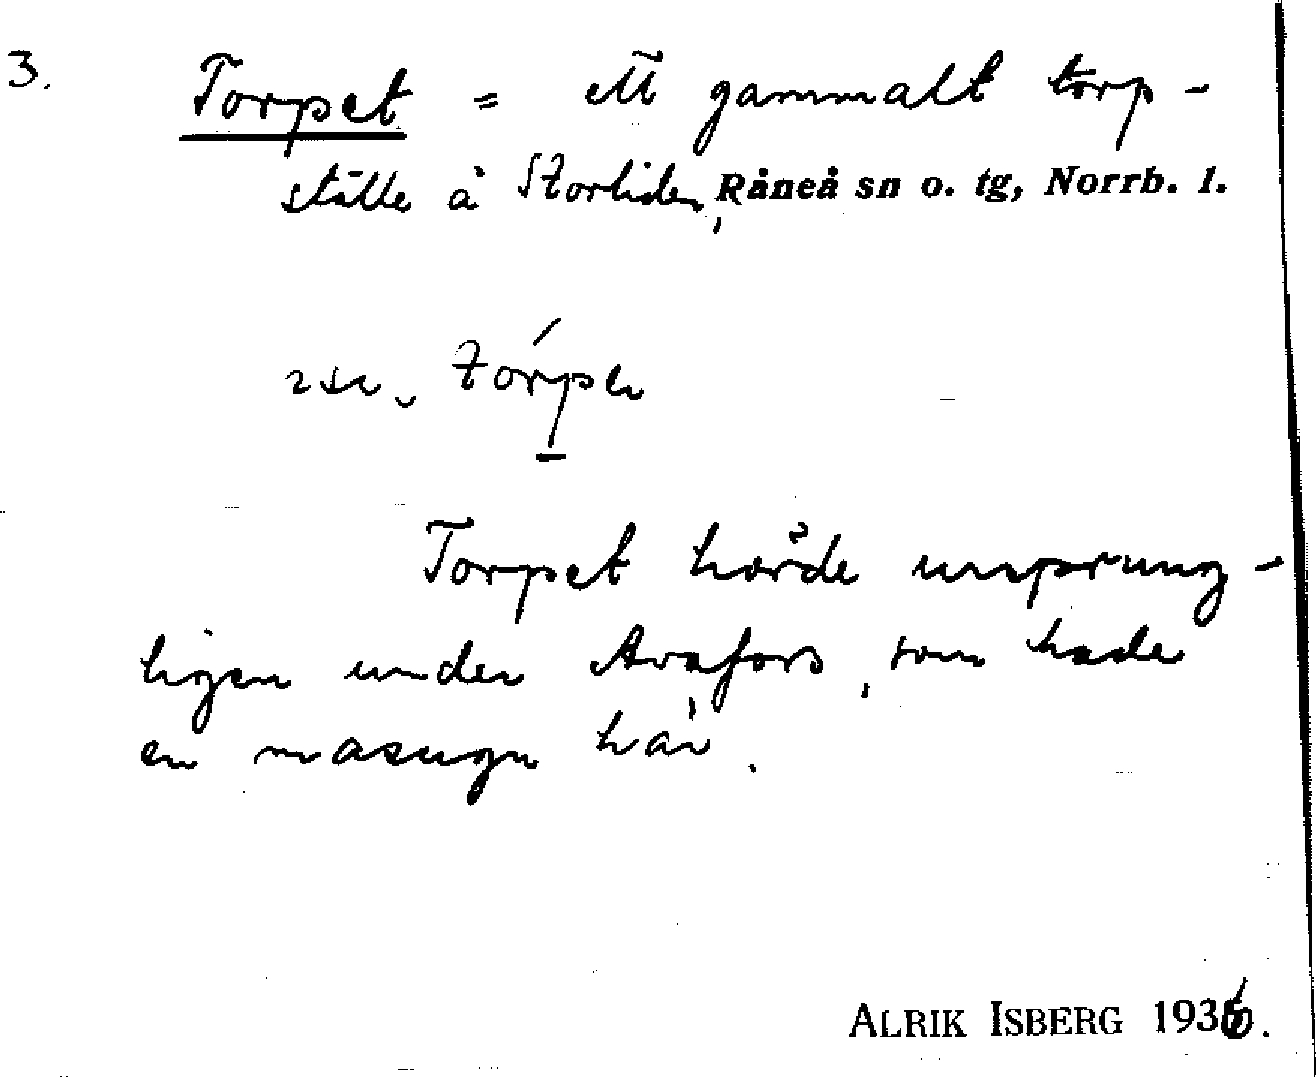 3. Torpet = ett gammalt torp-
ställe å Storliden, Råneå sn o. tg, Norrb. l.
Torpet hörde ursprung-
ligen under Avafors, som hade
en masugn här.
ALRIK ISBERG 1936.